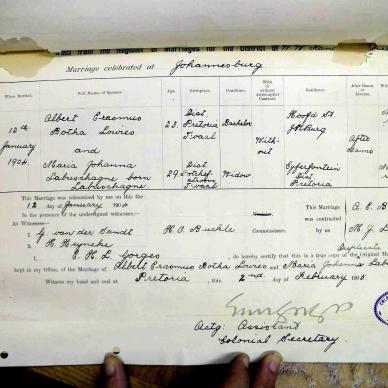 from the Register of Marriages for the District of
Marriage celebrated at Johannesburg
When Married. Full Names of Spouses. Age. Birthplace. Condition. With or without Antenuptial Contract. Residence. After Banns or Licence.
12th January 1904. Albert Erasmus Botha Lowres 23. Dist. Pretoria Tvaal Bachelor With-out Hoofd St JHBurg After Banns
and
Maria Johanna Labuschagne born Labuschagne. 29. Dist. Potchefstroom Tvaal Widow Dist. Pretoria
This Marriage was solemnized by me on this the
12 day of January 190
in the presence of the undersigned witnesses:—
This Marriage was contracted by us A. E. B
M. J. L
As Witnesses—
1. G. van der Sandt
H. O. Buckle
2. H. Heyneke
Duplicate
I, E. H. L. Gorges, do hereby certify that this is a true copy of the Original Ma
kept in my Office, of the Marriage of Albert Erasmus Botha Lowres and Maria Johanna Lab
Witness my hand and seal at Pretoria, this 2nd day of February 1905
Actg: Assistant
Colonial Secretary.